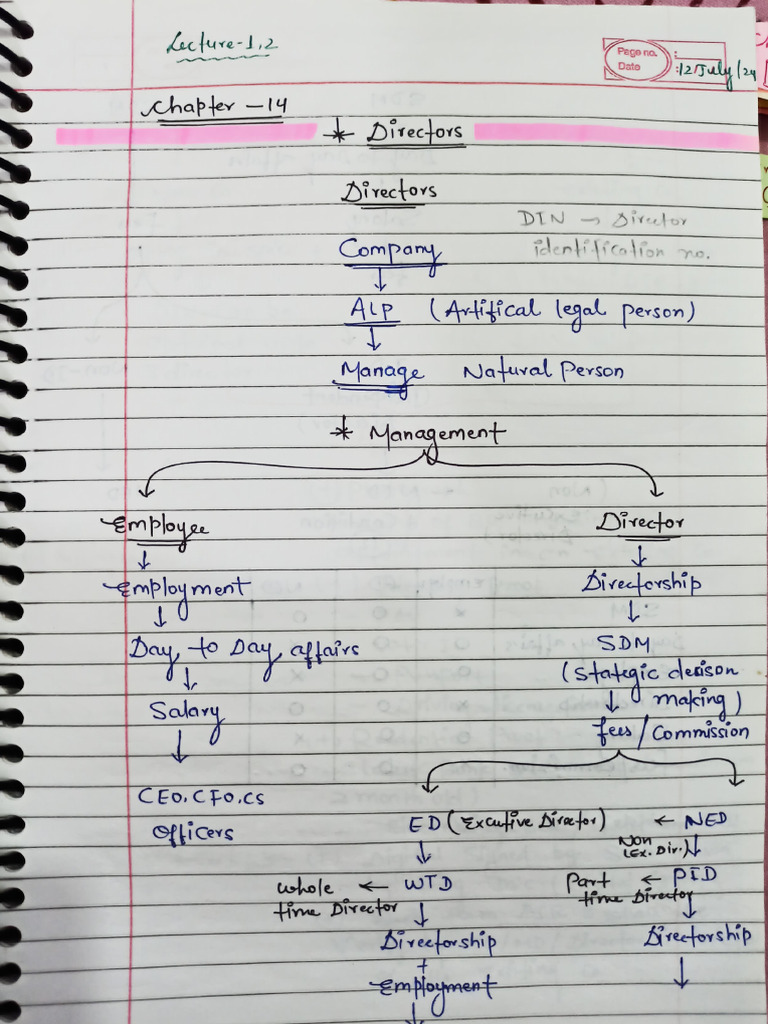 Lecture-1,2
Page no. :
Date :12 July/24
Chapter - 14
* Directors
Directors
DIN → Director
identification no.
Company
↓
ALP (Artifical legal person)
↓
Manage Natural Person
* Management
Employee Director
↓ ↓
Employment Directorship
↓ ↓
Day to Day affairs SDM
↓ (Stategic decison
Salary ↓ making)
↓ fees/Commission
CEO, CFO, CS
Officers
ED (Excutive Director) ← NED
↓ Non ↓
(Ex. Dir.)
whole ← WTD Part ← PTD
time Director ↓ time Director ↓
Directorship Directorship
+ ↓
Employment
↓